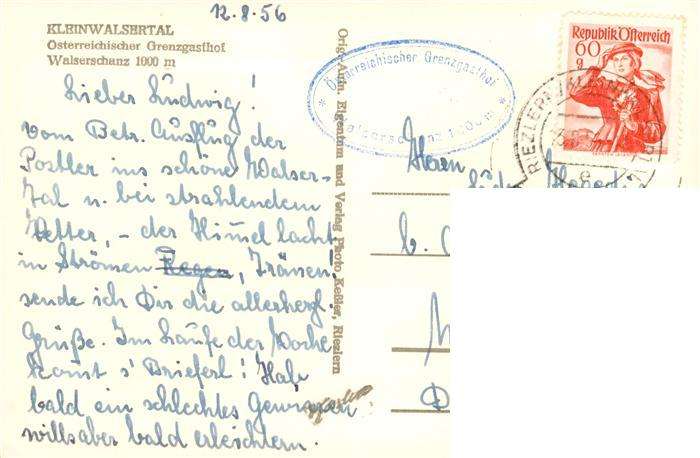 12.8.56
KLEINWALSERTAL
Österreichischer Grenzgasthof
Walserschanz 1000 m
Lieber Ludwig!
vom Betr. Ausflug der
Postler ins schöne Walser-
tal u. bei strahlendem
Wetter, – der Himel lacht
in Strömen Regen, Tränen!
sende ich Dir die allerherzl.
Grüße. Im Laufe der Woche
komt s' Brieferl! Hab
bald ein schlechtes Gewissen
wills aber bald erleichtern.
Orig.-Aufn. Eigentum und Verlag Photo Keßler, Riezlern
Österreichischer Grenzgasthof
Walserschanz 1000 m
Republik Österreich
60
g
RIEZLERN
Herrn
b.